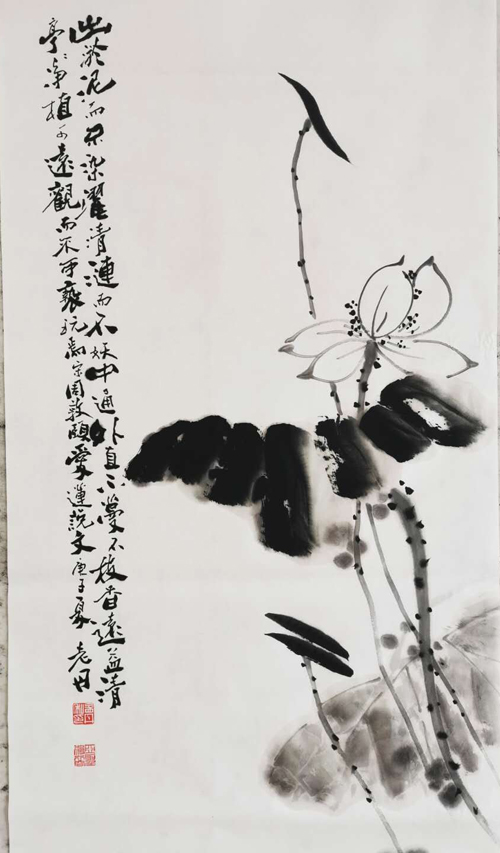 出淤泥而不染濯清漣而不妖中通外直不蔓不枝香遠益清
亭亭净植可遠觀而不可褻玩焉宋周敦頤愛蓮說文庚子夏老丹